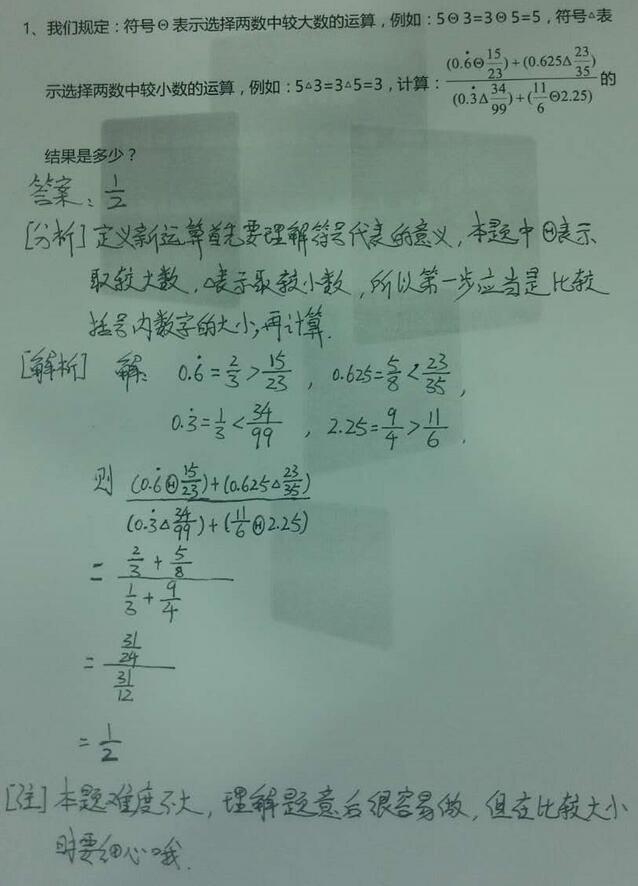 1、我们规定：符号Θ表示选择两数中较大数的运算，例如：5Θ3=3Θ5=5，符号△表
示选择两数中较小数的运算，例如：5△3=3△5=3，计算：\frac{(0.\dot{6}Θ\frac{15}{23})+(0.625Δ\frac{23}{35})}{(0.\dot{3}Δ\frac{34}{99})+(\frac{11}{6}Θ2.25)}的
结果是多少？
答案：\frac{1}{2}
[分析]定义新运算首先要理解符号代表的意义，本题中Θ表示
取较大数，△表示取较小数，所以第一步应当是比较
括号内数字的大小，再计算.
[解析] 解： 0.\dot{6}=\frac{2}{3}>\frac{15}{23}，0.625=\frac{5}{8}<\frac{23}{35}，
0.\dot{3}=\frac{1}{3}<\frac{34}{99}，2.25=\frac{9}{4}>\frac{11}{6}.
则 \frac{(0.\dot{6}Θ\frac{15}{23})+(0.625△\frac{23}{35})}{(0.\dot{3}△\frac{34}{99})+(\frac{11}{6}Θ2.25)}
=\frac{\frac{2}{3}+\frac{5}{8}}{\frac{1}{3}+\frac{9}{4}}
=\frac{\frac{31}{24}}{\frac{31}{12}}
=\frac{1}{2}
[注]本题难度不大，理解题意后很容易做，但在比较大小
时要细心哦.